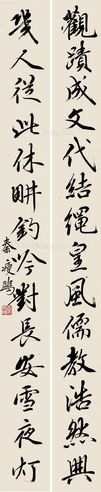 觀蹟成文代結繩皇風儒教浩然興
幾人從此休耕釣吟對長安雪夜灯
秦瘦鷗